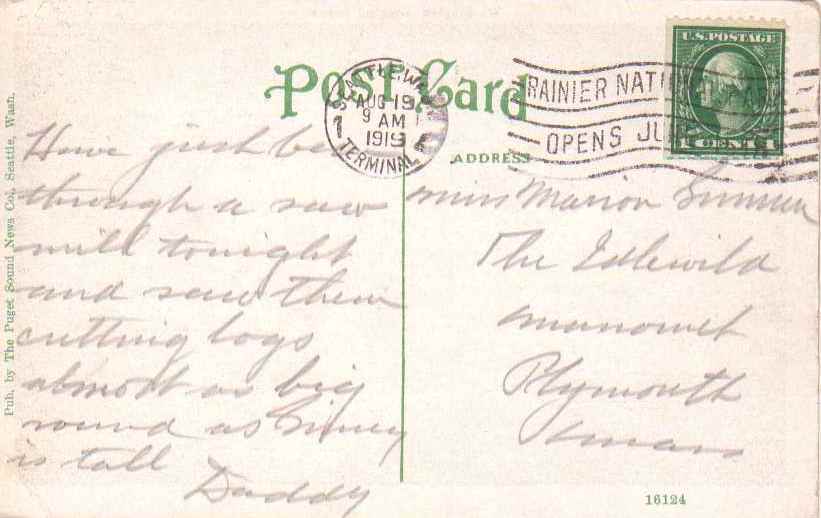 Post Card
SEATTLE, WASH.
AUG 19
9 AM
1919
TERMINAL
RAINIER NATI
OPENS JU
U.S. POSTAGE
1 CENT 1
ADDRESS
Have just been
through a saw
mill tonight
and saw them
cutting logs
almost as big
round as
is tall
Daddy
Miss Marion
The Idlewild
Manomet
Plymouth
Mass
Pub. by The Puget Sound News Co., Seattle, Wash.
16124